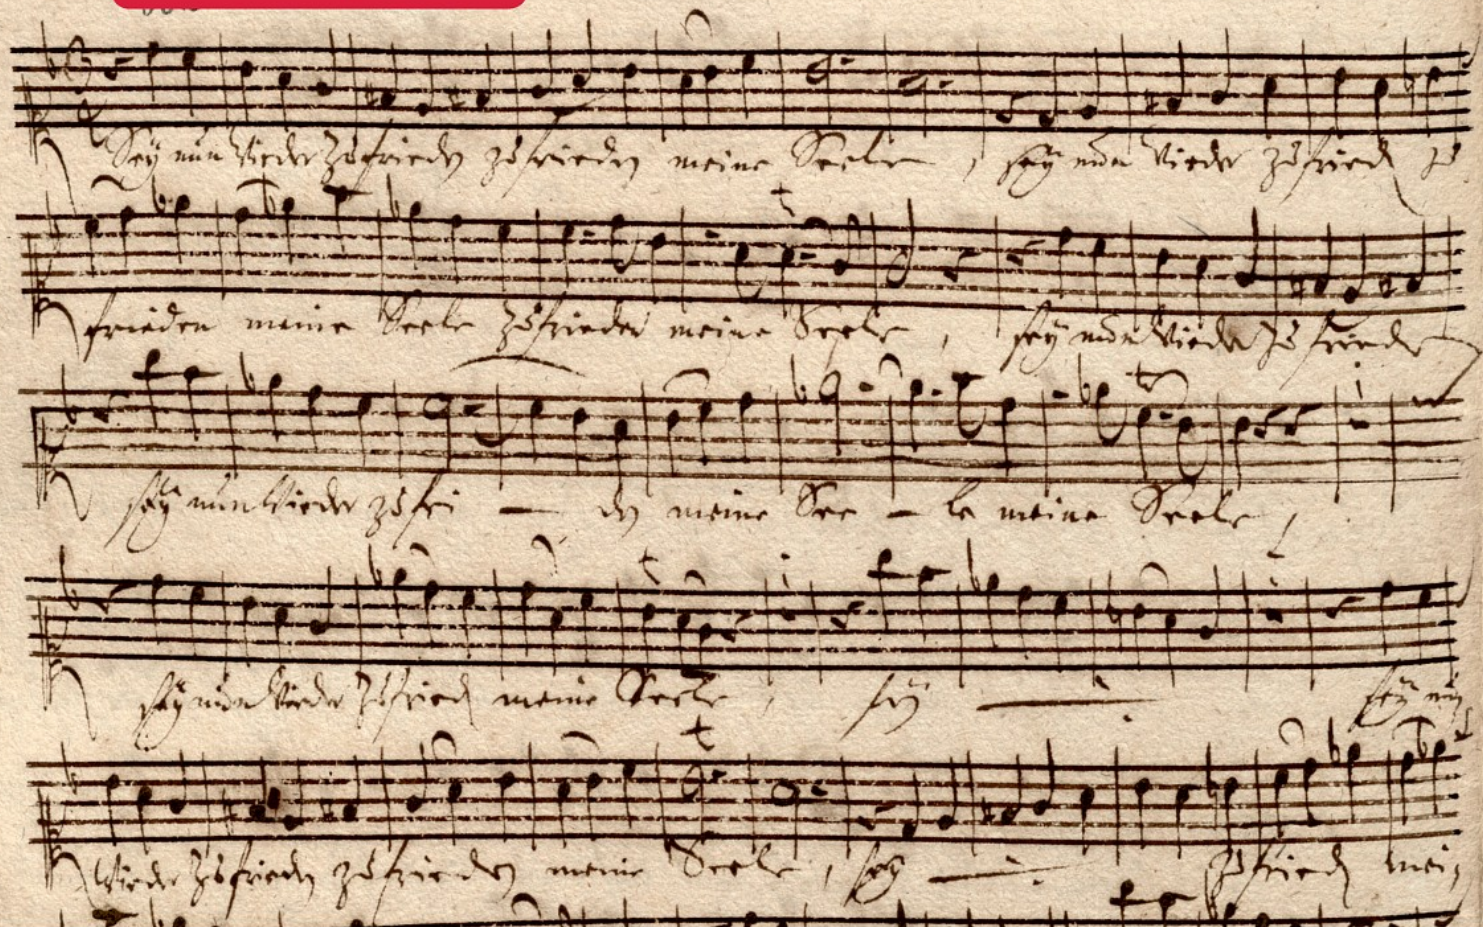 Sey nun wieder zufrieden zufrieden meine Seele, sey nun wieder zufried zu
frieden meine Seele zufrieden meine Seele, sey nun wieder zufrieden
sey nun wieder zufrie — dn meine See — le meine Seele,
sey nun wieder zufried meine Seele, sey — sey nun
wieder zufrieden zufrieden meine Seele, sey — zufried mei,